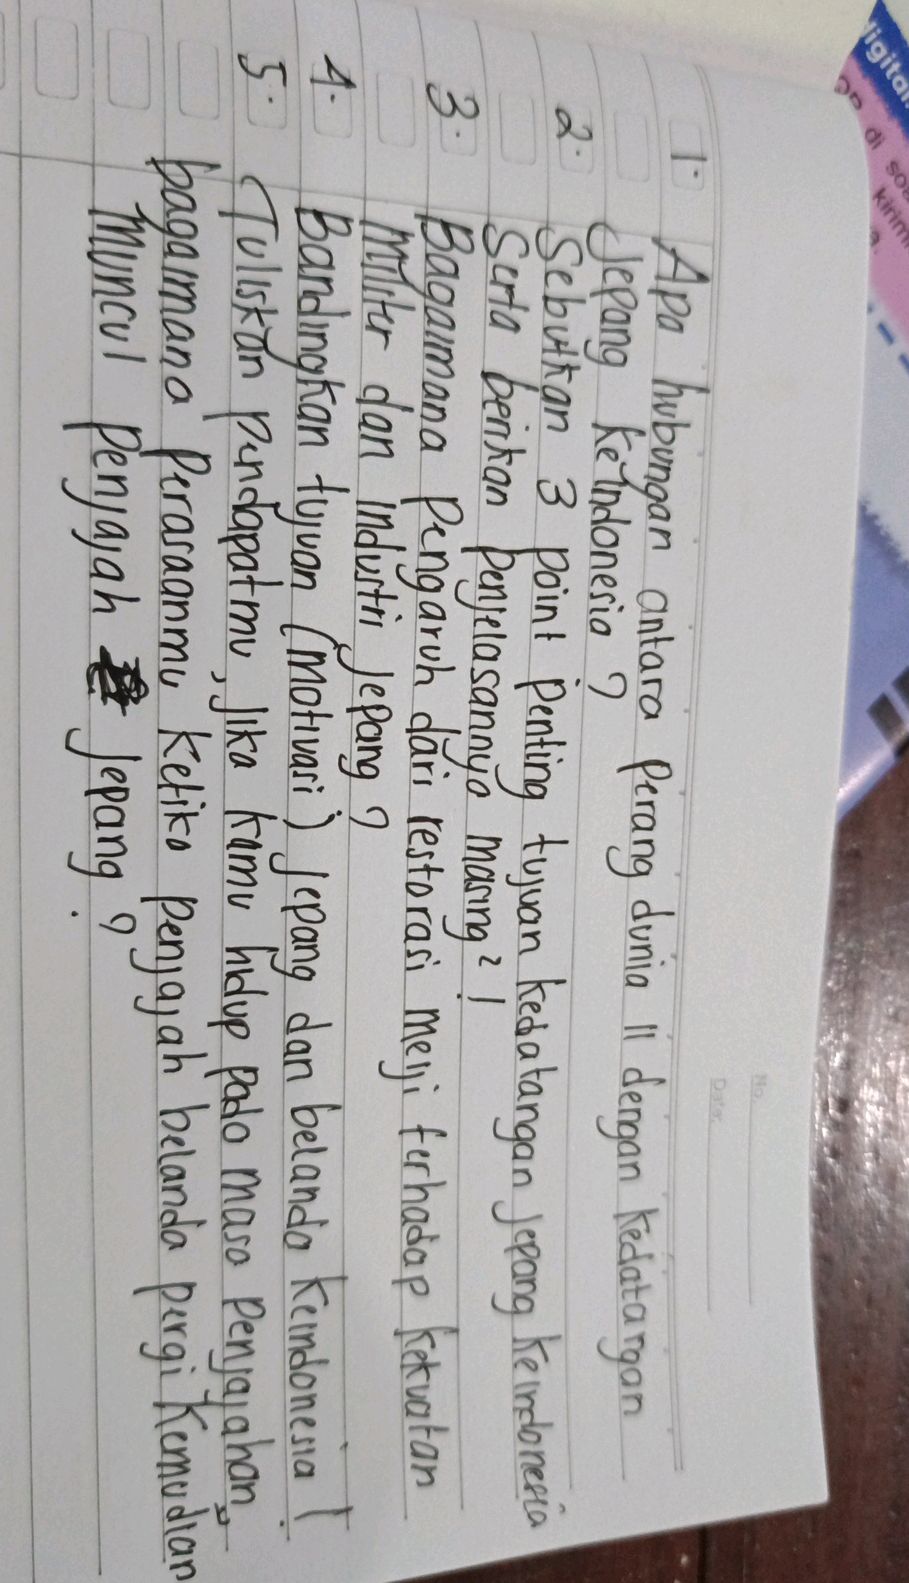 No.
Date:
1. Apa hubungan antara Perang dunia II dengan kedatangan
Jepang keindonesia ?
2. Sebutkan 3 point penting tujuan kedatangan Jepang keindonesia
Serta berikan penjelasannya masing² !
3. Bagaimana pengaruh dari restorasi meiji terhadap kekuatan
Militer dan industri Jepang ?
4. Bandingkan tujuan (motivasi) Jepang dan belanda keindonesia !
5. Tuliskan pendapatmu, jika kamu hidup pada masa penjajahan
bagaimana perasaanmu ketika penjajah belanda pergi kemudian
Muncul penjajah Jepang ?
di
kirim